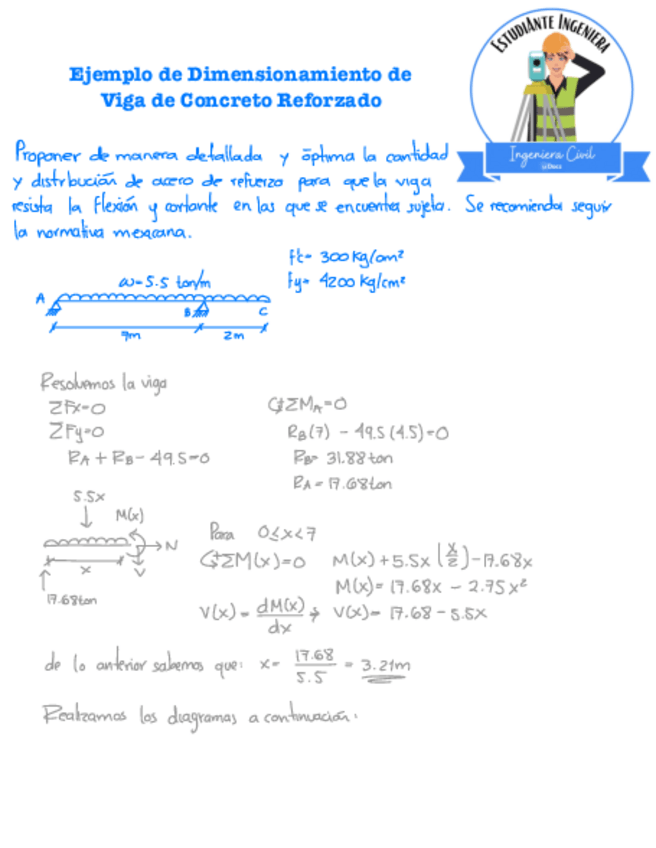 ESTUDIANTE INGENIERA
Ejemplo de Dimensionamiento de
Viga de Concreto Reforzado
Ingeniera Civil
Proponer de manera detallada y óptima la cantidad
y distribución de acero de refuerzo para que la viga
resista la flexión y cortante en las que se encuentra sujeta. Se recomienda seguir
la normativa mexicana.
f'c= 300 kg/cm²
fy= 4200 kg/cm²
ω=5.5 ton/m
A B C
7m 2m
Resolvemos la viga
ΣFx=0
ΣFy=0
RA + RB - 49.5=0
ΣMA=0
RB(7) - 49.5(4.5)=0
RB= 31.88 ton
RA= 17.68 ton
5.5x
M(x)
N
x V
17.68 ton
Para 0≤x<7
ΣM(x)=0 M(x)+5.5x(x/2)-17.68x
M(x)= 17.68x - 2.75x²
V(x)= dM(x)/dx → V(x)= 17.68-5.5x
de lo anterior sabemos que: x= 17.68/5.5 = 3.21m
Realizamos los diagramas a continuación: